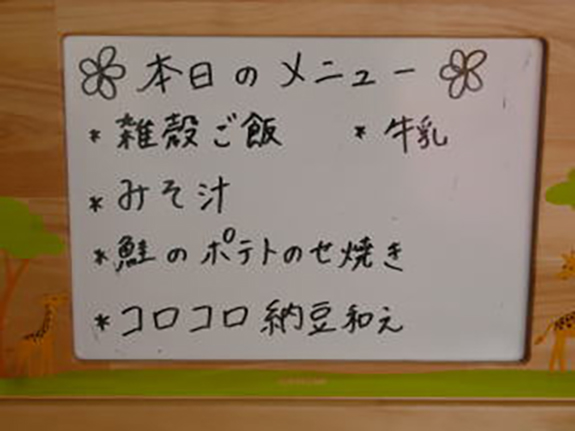 本日のメニュー
* 雑穀ご飯 * 牛乳
* みそ汁
* 鮭のポテトのせ焼き
* コロコロ納豆和え